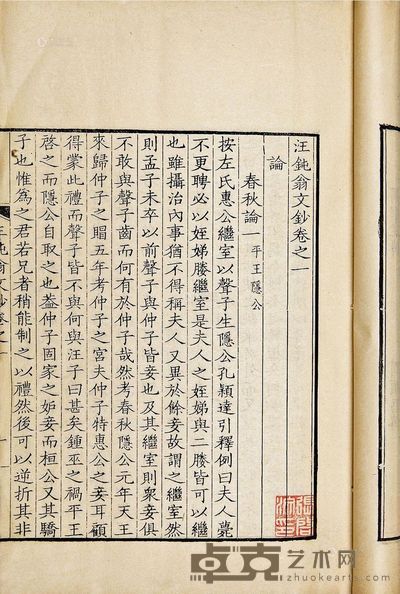 汪鈍翁文鈔卷之一
論
春秋論一 平王隱公
按左氏惠公繼室以聲子生隱公孔穎達引釋例曰夫人薨
不更聘必以姪娣媵繼室是夫人之姪娣與二媵皆可以繼室
也雖攝治內事猶不得稱夫人又異於餘妾故謂之繼室然
則孟子未卒以前聲子與仲子皆妾也及其繼室則衆妾俱
不敢與聲子齒而何有於仲子哉然考春秋隱公元年天王
來歸仲子之賵五年考仲子之宮夫仲子特惠公之妾耳顧
得蒙此禮而聲子皆不與何與汪子曰甚矣鍾巫之禍平王
啓之而隱公自取之也葢仲子固家之妒妾而桓公又其驕
子也惟為之君若兄者稍能制之以禮然後可以逆折其非
汪鈍翁文鈔卷之一
卓克艺术网
www.zhuokearts.com